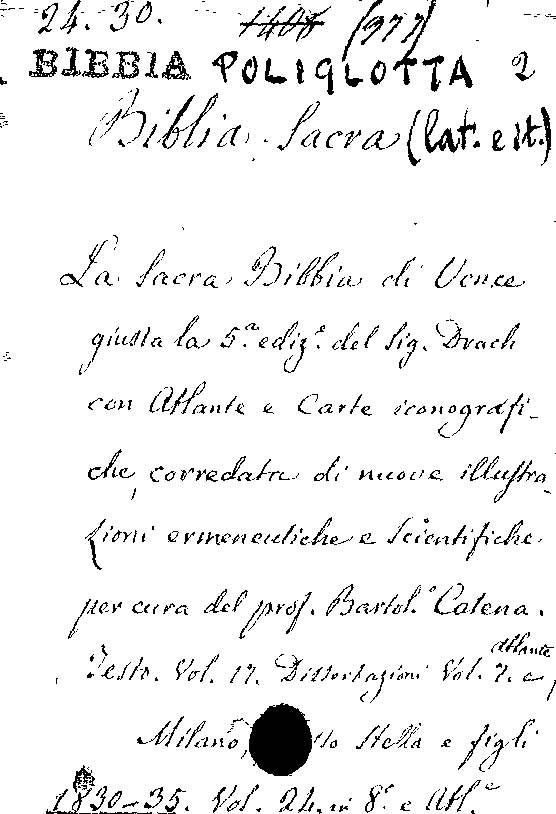 24. 30. 1408 (977)
BIBBIA POLIGLOTTA 2
Biblia Sacra (lat. e it.)
La Sacra Bibbia di Vence
giusta la 5.ª ediz.e del Sig. Drach
con Atlante e Carte iconografi-
che, corredata di nuove illustra-
zioni ermeneutiche e scientifiche
per cura del prof. Bartol.o Catena.
Testo. Vol. 17. Dissertazioni Vol. 7. e Atlante
Milano, Stella e figli
1830-35. Vol. 24. in 8.º e Atl.e